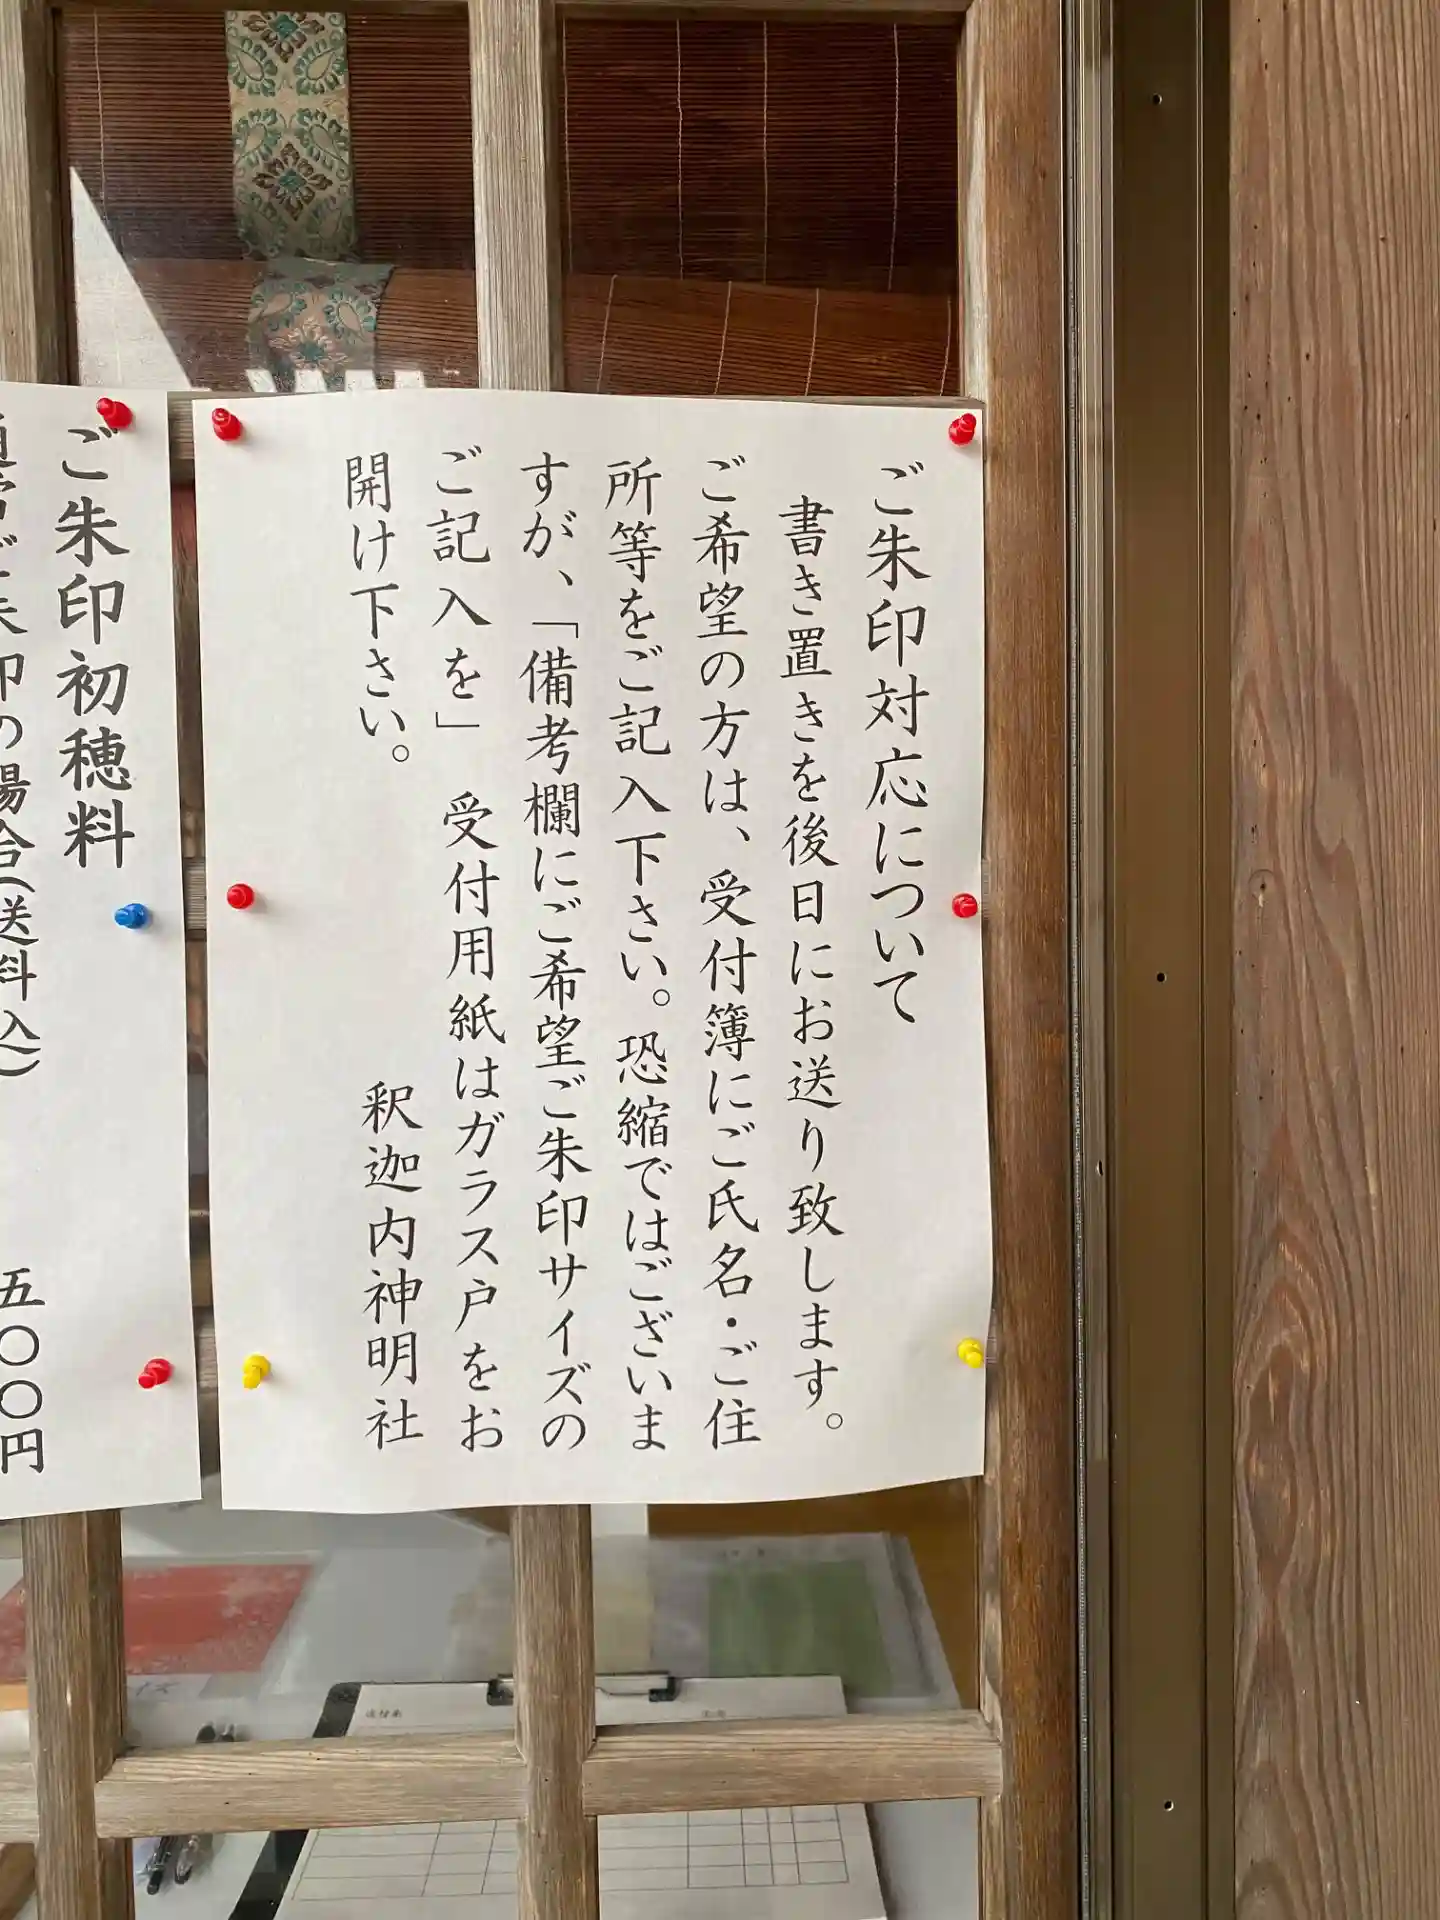 ご朱印対応について
書き置きを後日にお送り致します。
ご希望の方は、受付簿にご氏名・ご住
所等をご記入下さい。恐縮ではございま
すが、「備考欄にご希望ご朱印サイズの
ご記入を」 受付用紙はガラス戸をお
開け下さい。
釈迦内神明社
ご朱印初穂料
朱印の場合(送料込)
五〇〇円